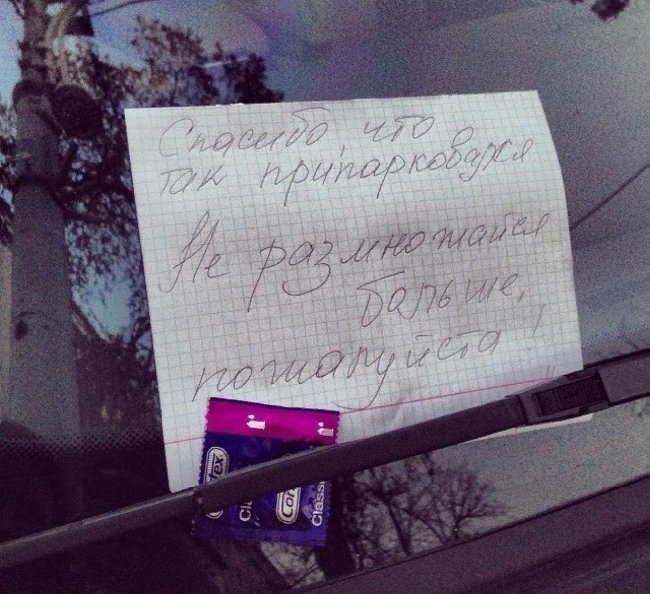 Спасибо, что
так припарковался
Не размножайся
больше,
пожалуйста!
Contex
Classic
Cont
Class